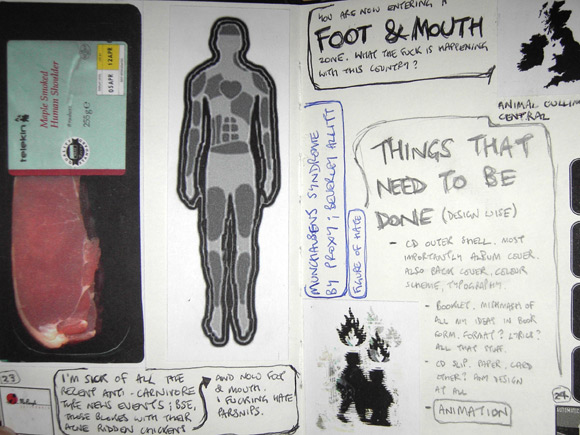 12 APR
03 APR
255g e
Maple Smoked
Human Shoulder
telekin
23
I'M SICK OF ALL THE
RECENT ANTI-CARNIVORE
TYPE NEWS EVENTS; BSE,
THOSE BLOKES WITH THEIR
ACNE RIDDEN CHICKENS
AND NOW FOOT
& MOUTH.
I FUCKING HATE
PARSNIPS.
YOU ARE NOW ENTERING A
FOOT & MOUTH
ZONE. WHAT THE FUCK IS HAPPENING
WITH THIS COUNTRY?
ANIMAL CULLING
CENTRAL
MUNCHAUSENS SYNDROME
BY PROXY; BEVERLEY ALLITT
FIGURE OF HATE
THINGS THAT
NEED TO BE
DONE (DESIGN WISE)
- CD OUTER SHELL. MOST
IMPORTANTLY ALBUM COVER.
ALSO BACK COVER, COLOUR
SCHEME, TYPOGRAPHY.
- BOOKLET. MISHMASH OF
ALL MY IDEAS IN BOOK
FORM. FORMAT? LYRICS?
ALL THAT STUFF.
- CD SLIP. PAPER, CARD
OTHER? ANY DESIGN
AT ALL
- ANIMATION
24